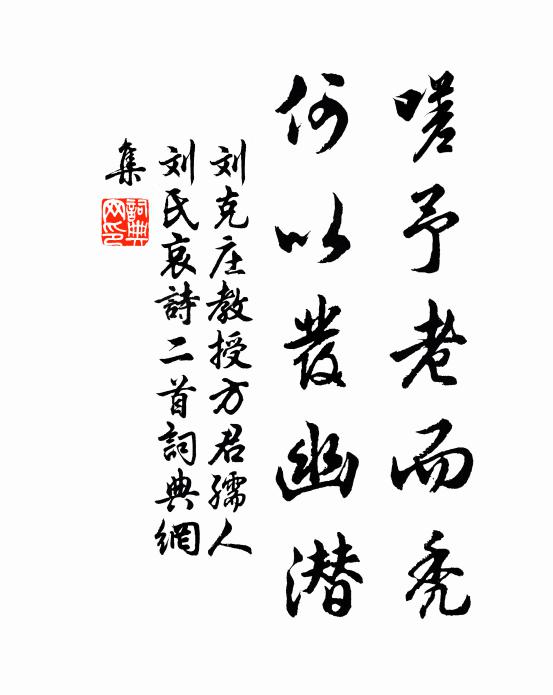 嗟予老而秃
何以發幽潜
刘克庄教授方君孺人
刘氏哀詩二首詞典網
集
詞典
网印